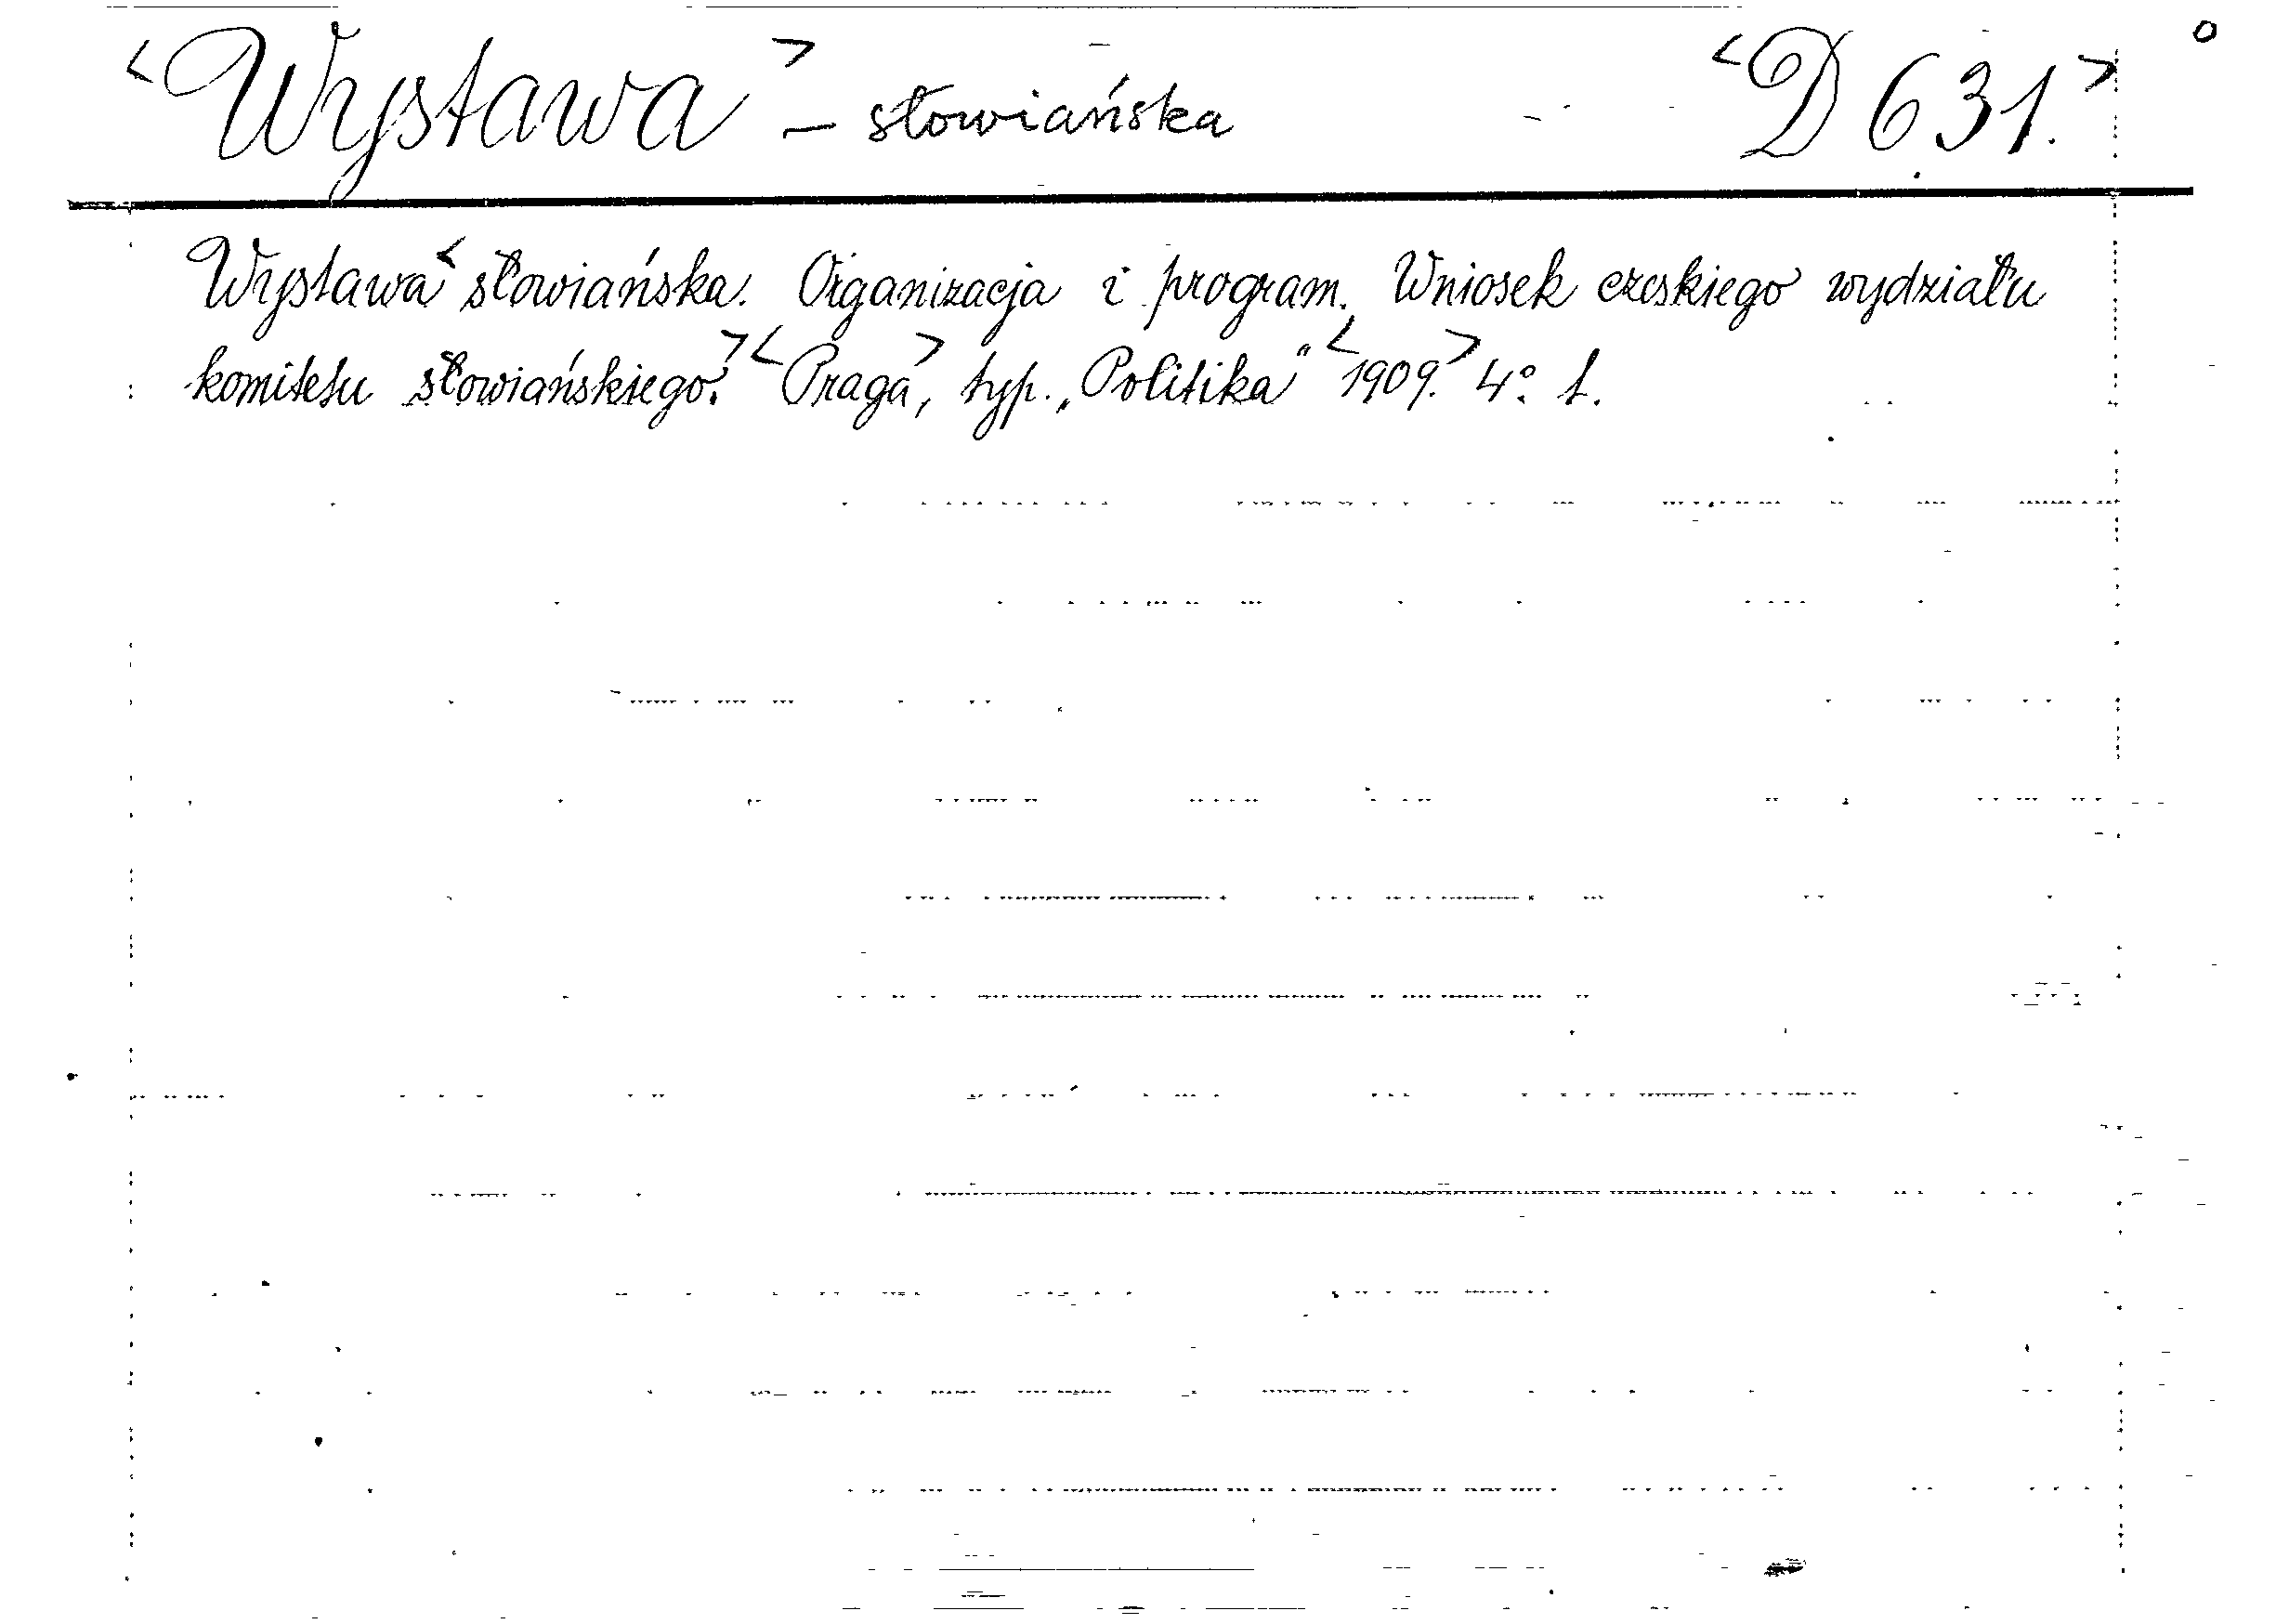 <Wystawa> – słowiańska <D 631.>
Wystawa <słowiańska. Organizacja i program. Wniosek czeskiego wydziału
komitetu słowiańskiego.> <Praga>, typ. „Politika" <1909.> 4º. 1.